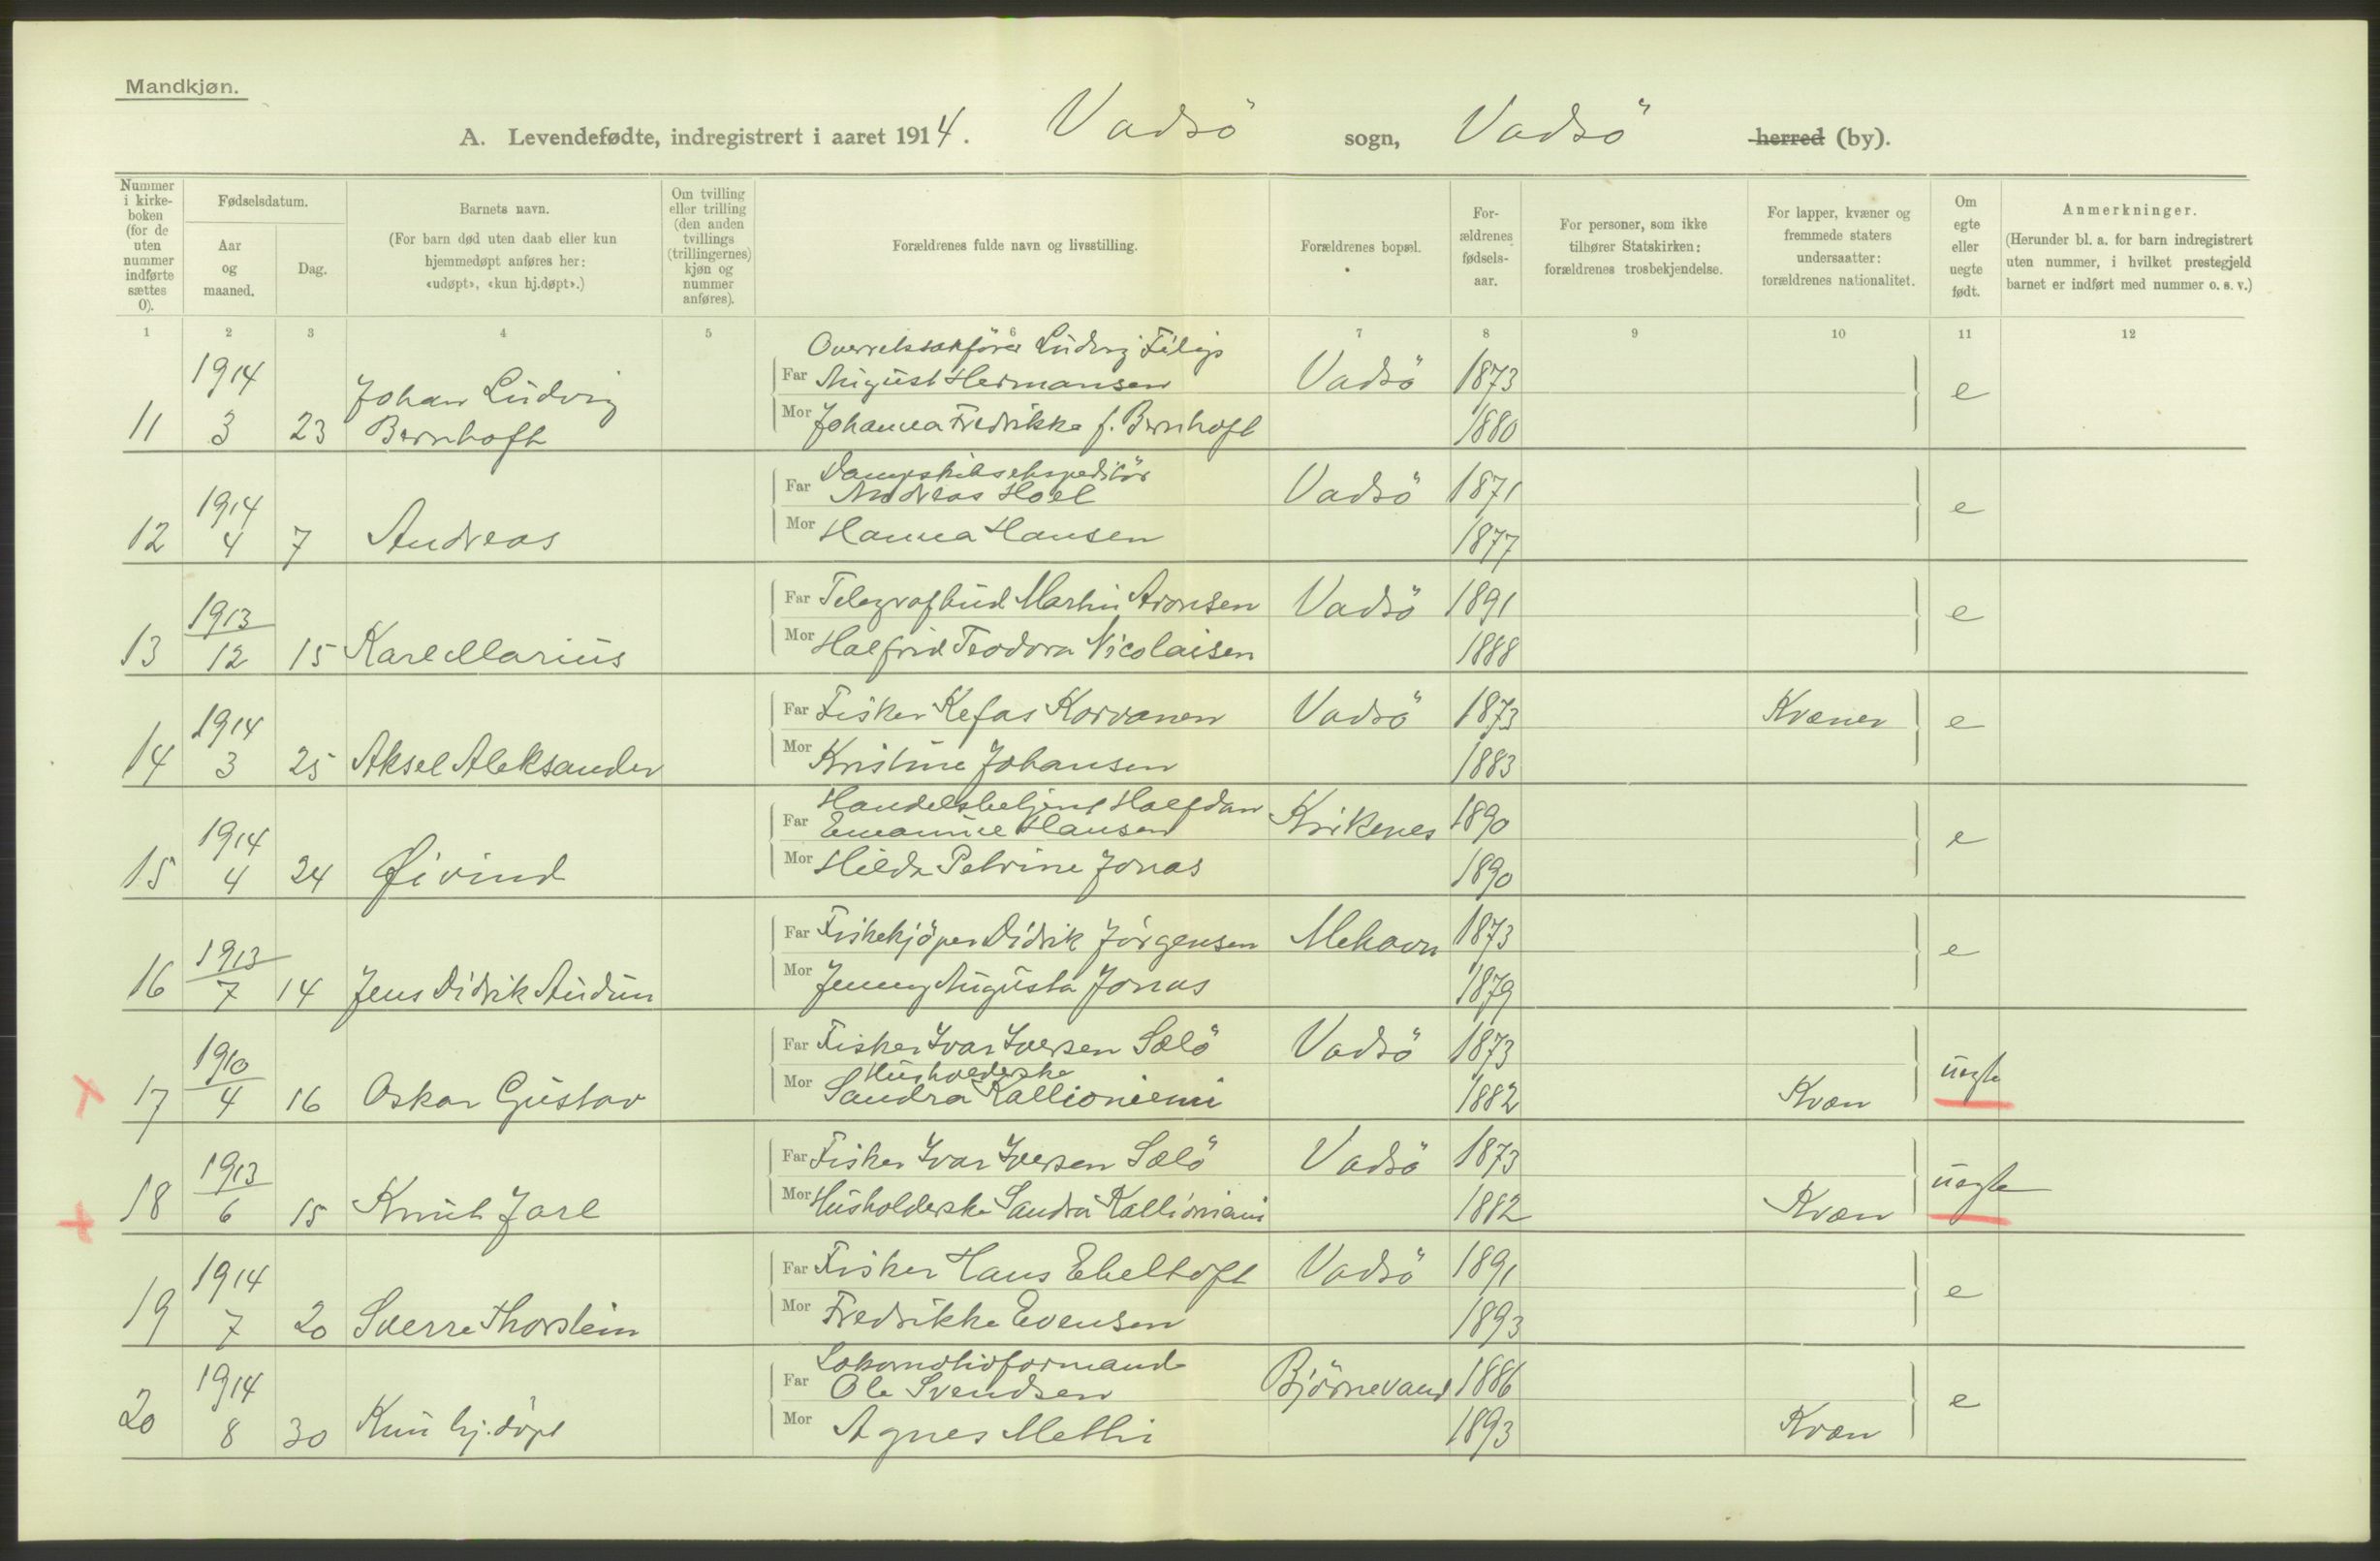 Mandkjøn.
A. Levendefødte, indregistrert i aaret 1914. Vadsö sogn, Vadsö herred (by).
Nummer i kirkeboken (for de uten nummer indførte sættes 0).
Fødselsdatum.
Aar og maaned.
Dag.
Barnets navn.
(For barn død uten daab eller kun hjemmedøpt anføres her: «udøpt», «kun hj.døpt».)
Om tvilling eller trilling (den anden tvillings (trillingernes) kjøn og nummer anføres).
Forældrenes fulde navn og livsstilling.
Forældrenes bopæl.
Forældrenes fødselsaar.
For personer, som ikke tilhører Statskirken: forældrenes trosbekjendelse.
For lapper, kvæner og fremmede staters undersaatter: forældrenes nationalitet.
Om egte eller uegte født.
Anmerkninger.
(Herunder bl. a. for barn indregistrert uten nummer, i hvilket prestegjeld barnet er indført med nummer o. s. v.)
1 2 3 4 5 6 7 8 9 10 11 12
Overretssakförer Ludvig Filip
1914 Johan Ludvig Far August Hermansen Vadsö 1873 e
11 3 23 Bernhoft Mor Johanna Fredrikke f. Bernhoft 1880
Dampskibsekspeditör
1914 Far Andreas Hoel Vadsö 1871 e
12 4 7 Andreas Mor Hanna Hansen 1877
1913 Far Telegrafbud Martin Aronsen Vadsö 1891 e
13 12 15 Karl Marius Mor Halfrid Teodora Nicolaisen 1888
1914 Far Fisker Kefas Korvanen Vadsö 1873 Kvæner e
14 3 25 Aksel Aleksander Mor Kristine Johansen 1883
Handelsbetjent Halfdan
1914 Far Emanuel Hansen Kirkenes 1890 e
15 4 24 Øivind Mor Hilda Petrine Jonas 1890
1913 Far Fiskekjöper Didrik Jörgensen Mehavn 1873 e
16 7 14 Jens Didrik Audun Mor Jenny Augusta Jonas 1879
1910 Far Fisker Ivar Iversen Sælö Vadsö 1873 uegte
Husholderske
17 4 16 Oskar Gustav Mor Sandra Kallioniemi 1882 Kvæn
1913 Far Fisker Ivar Iversen Sælö Vadsö 1873 uegte
18 6 15 Knut Jarl Mor Husholderske Sandra Kallioniemi 1882 Kvæn
1914 Far Fisker Hans Ebeltoft Vadsö 1891 e
19 7 20 Sverre Thorstein Mor Fredrikke Evensen 1893
Lokomotivformand
1914 Far Ole Svendsen Björnevand 1886 e
20 8 30 Kun hj.döpt Mor Agnes Methi 1893 Kvæn